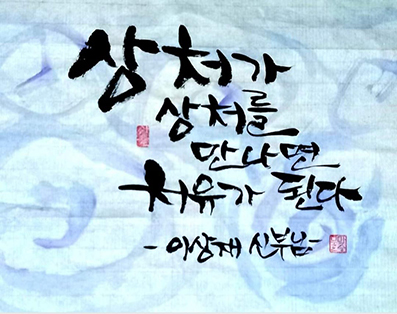 상처가
상처를
만나면
치유가 된다
- 이상재 신부님 -